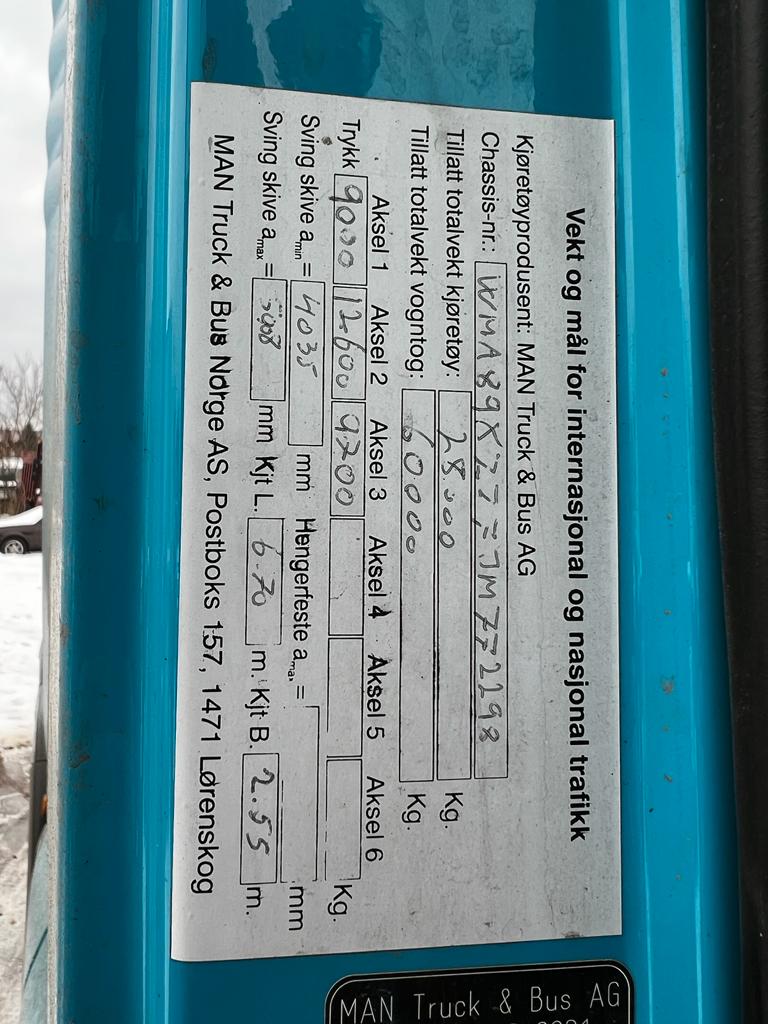 Vekt og mål for internasjonal og nasjonal trafikk
Kjøretøyprodusent: MAN Truck & Bus AG
Chassis-nr.:
Tillatt totalvekt kjøretøy: 28.000 Kg.
Tillatt totalvekt vogntog: 60000 Kg.
Aksel 1 Aksel 2 Aksel 3 Aksel 4 Aksel 5 Aksel 6
Trykk 9000 12600 9200 Kg.
Sving skive amin = 4035 mm Hengerfeste amax = mm
Sving skive amax = mm Kjt L. 6.70 m. Kjt B. 2.55 m.
MAN Truck & Bus Norge AS, Postboks 157, 1471 Lørenskog
MAN Truck & Bus AG